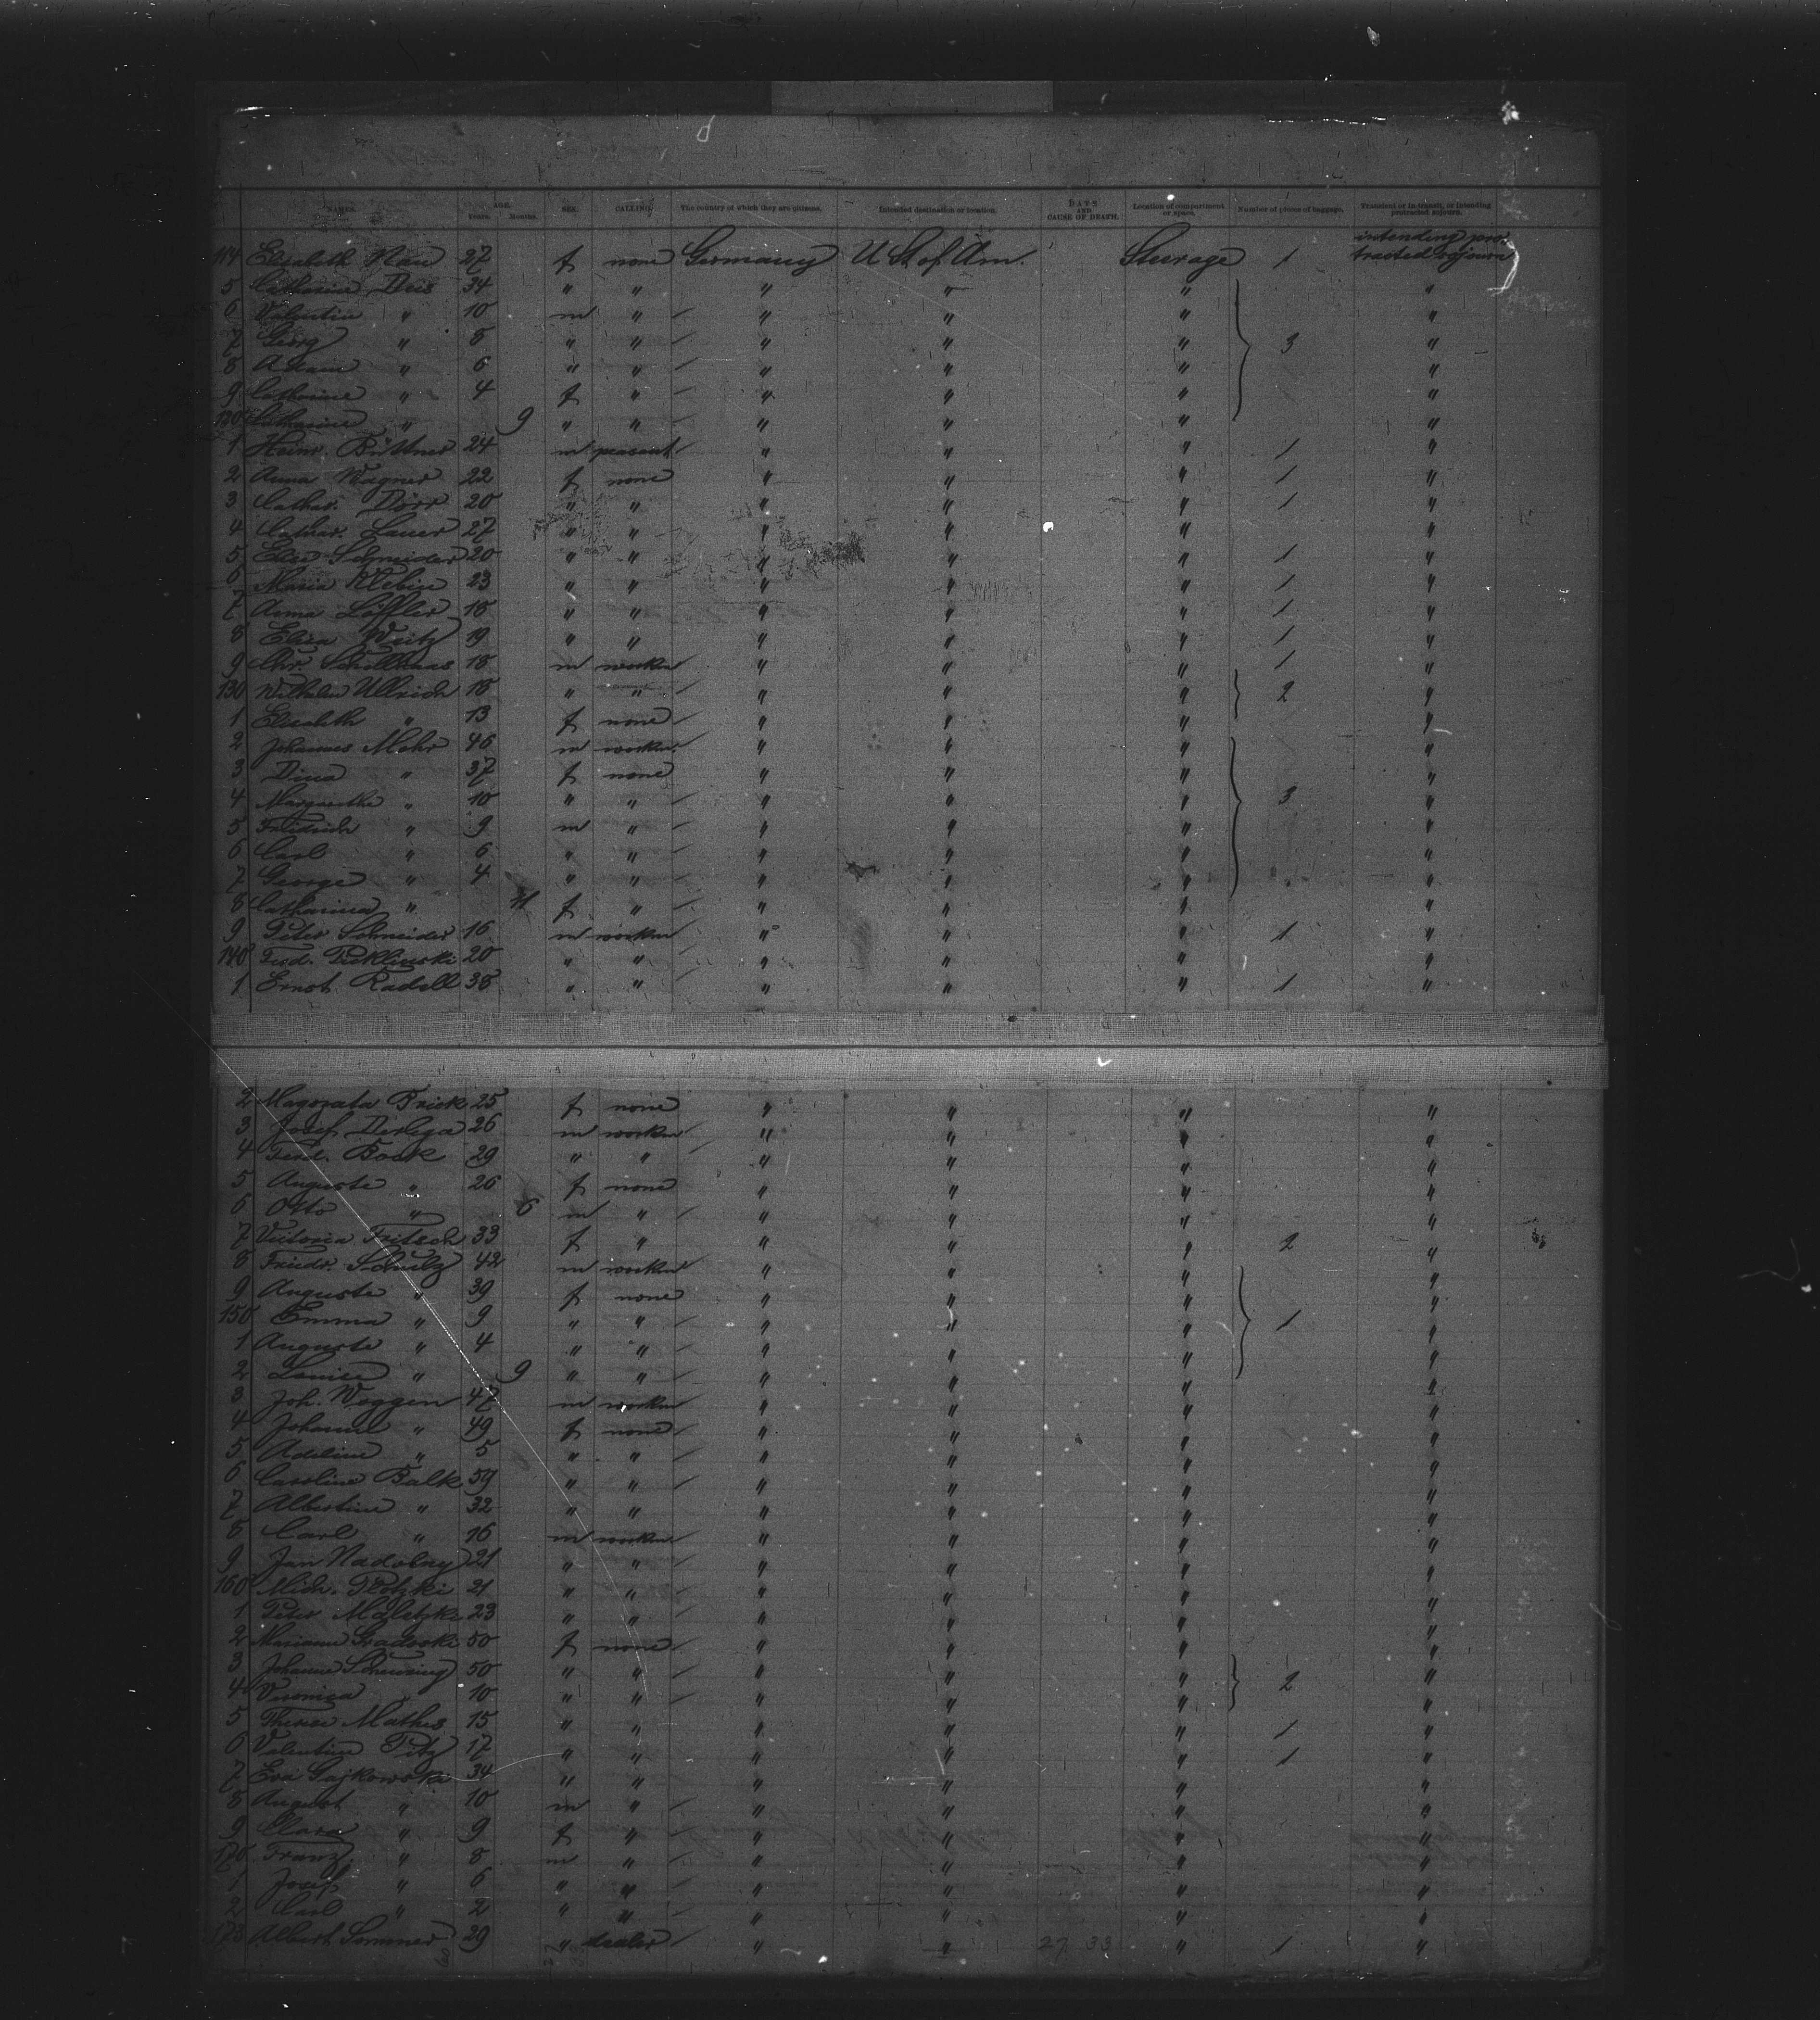 NAMES. AGE. Years. Months. SEX. CALLING. The country of which they are citizens. Intended destination or location. DATE AND CAUSE OF DEATH. Location of compartment or space. Number of pieces of baggage. Transient or in transit, or intending protracted sojourn.
114 Elisabeth Nau 27 f none Germany U St. of Am. Steerage 1 intending protracted sojourn
5 Catharina Deis 34 " " " " " "
6 Valentin " 10 m " " " " "
7 Georg " 8 " " " " " 3 "
8 Adam " 6 " " " " " "
9 Catharina " 4 f " " " " "
120 Catharina " 9 " " " " " "
1 Heinr. Büttner 24 m peasant " " " 1 "
2 Anna Wagner 22 f none " " " 1 "
3 Cathar. Dörr 20 " " " " " 1 "
4 Cathar. Lauer 27 " " " " " "
5 Elise Schneider 20 " " " " " 1 "
6 Maria 23 " " " " " 1 "
7 Anna Löffler 18 " " " " " 1 "
8 Elisa Weitz 19 " " " " " 1 "
9 Chr. 18 m worker " " " 1 "
130 Wilhelm Ullrich 18 " " " " " 2 "
1 Elisabeth " 13 f none " " " "
2 Johannes Mohr 46 m worker " " " "
3 Dina " 37 f none " " " "
4 Margarethe " 10 " " " " " 3 "
5 Friedrich " 9 m " " " " "
6 Carl " 6 " " " " " "
7 George " 4 " " " " " "
8 Catharina " 11 f " " " " "
9 Peter Schneider 16 m worker " " " 1 "
140 Ferd. Picklinski 20 " " " " " "
1 Ernst Radell 38 " " " " " 1 "
2 Magorata Brick 25 f none " " " "
3 Josef Derlega 26 m worker " " " "
4 Ferd. Bock 29 " " " " " "
5 Auguste " 26 f none " " " "
6 Otto " 6 m " " " " "
7 Victoria Fritsch 33 f " " " " 2 "
8 Friedr. Schulz 42 m worker " " " "
9 Auguste " 39 f none " " " "
150 Emma " 9 " " " " " 1 "
1 Auguste " 4 " " " " " "
2 Louise " 9 " " " " " "
3 Joh. Woggon 47 m worker " " " "
4 Johanne " 49 f none " " " "
5 Adeline " 5 " " " " " "
6 Caroline Balk 59 " " " " " "
7 Albertine " 32 " " " " " "
8 Carl " 16 m worker " " " "
9 Jan Nadolny 21 " " " " " "
160 Mich. Plotzki 21 " " " " " "
1 Peter Maletzki 23 " " " " " "
2 Marianne Gradoski 50 f none " " " "
3 Johanne 50 " " " " " "
4 Veronica " 10 " " " " " 2 "
5 Therese Mathes 15 " " " " " 1 "
6 Valentine Pitz 17 " " " " " 1 "
7 Eva Gajkowski 34 " " " " " "
8 August " 10 m " " " " "
9 Clara " 9 f " " " " "
170 Franz " 8 m " " " " "
1 Josef " 6 " " " " " "
2 Carl " 2 " " " " " "
173 Albert Sommer 29 " dealer " " 27 33 " 1 "